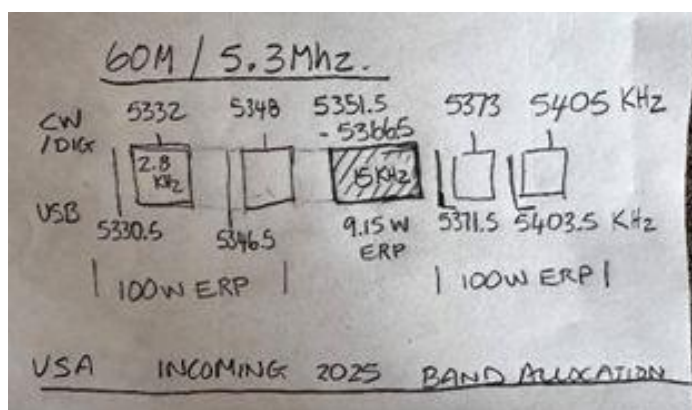 60M / 5.3Mhz.
CW /DIG 5332 5348 5351.5 - 5366.5 5373 5405 KHz
2.8 KHz 15 KHz
USB 5330.5 5346.5 9.15 W ERP 5371.5 5403.5 KHz
100W ERP 100W ERP
USA INCOMING 2025 BAND ALLOCATION